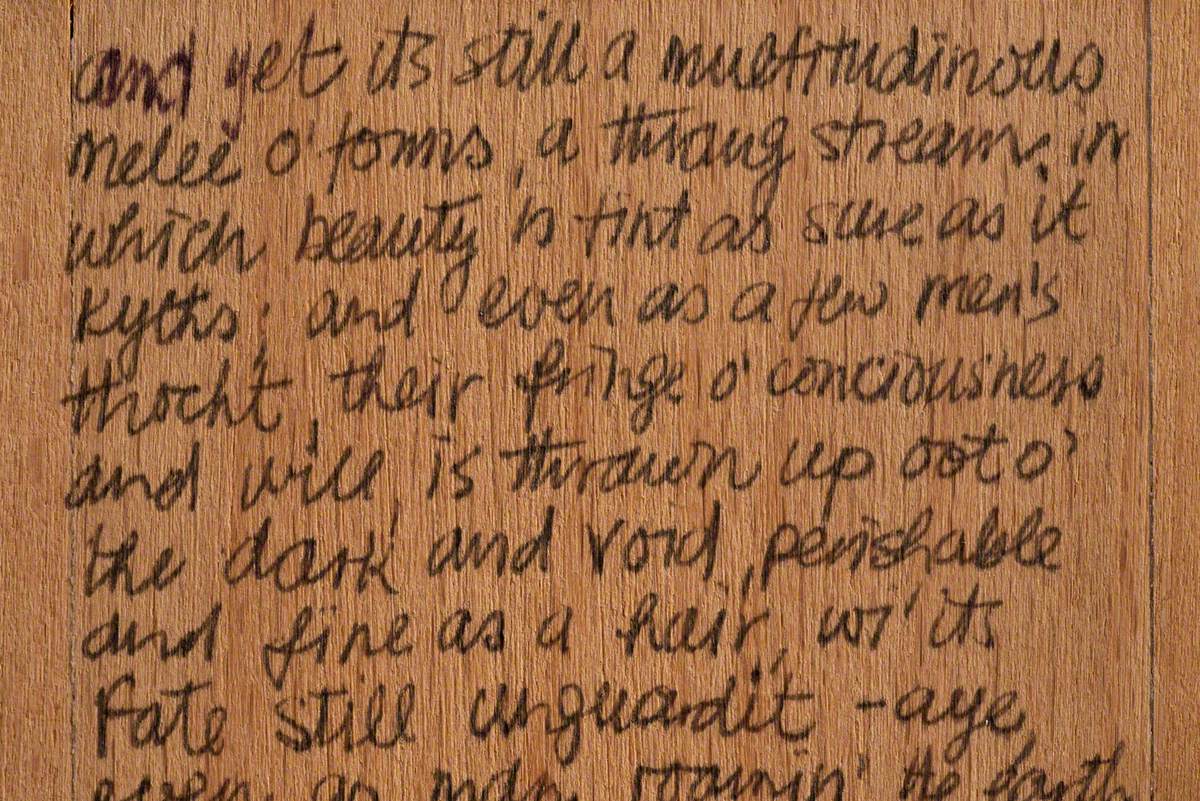 and yet its still a multitudinous
melee o' forms, a thrang stream, in
which beauty is tint as sune as it
kyths; and even as a few men's
thocht, their fringe o' conciousness
and will, is thrawn up oot o'
the dark and void, perishable
and fine as a hair, wi' its
Fate still unguardit - aye,
even as roamin' the Earth